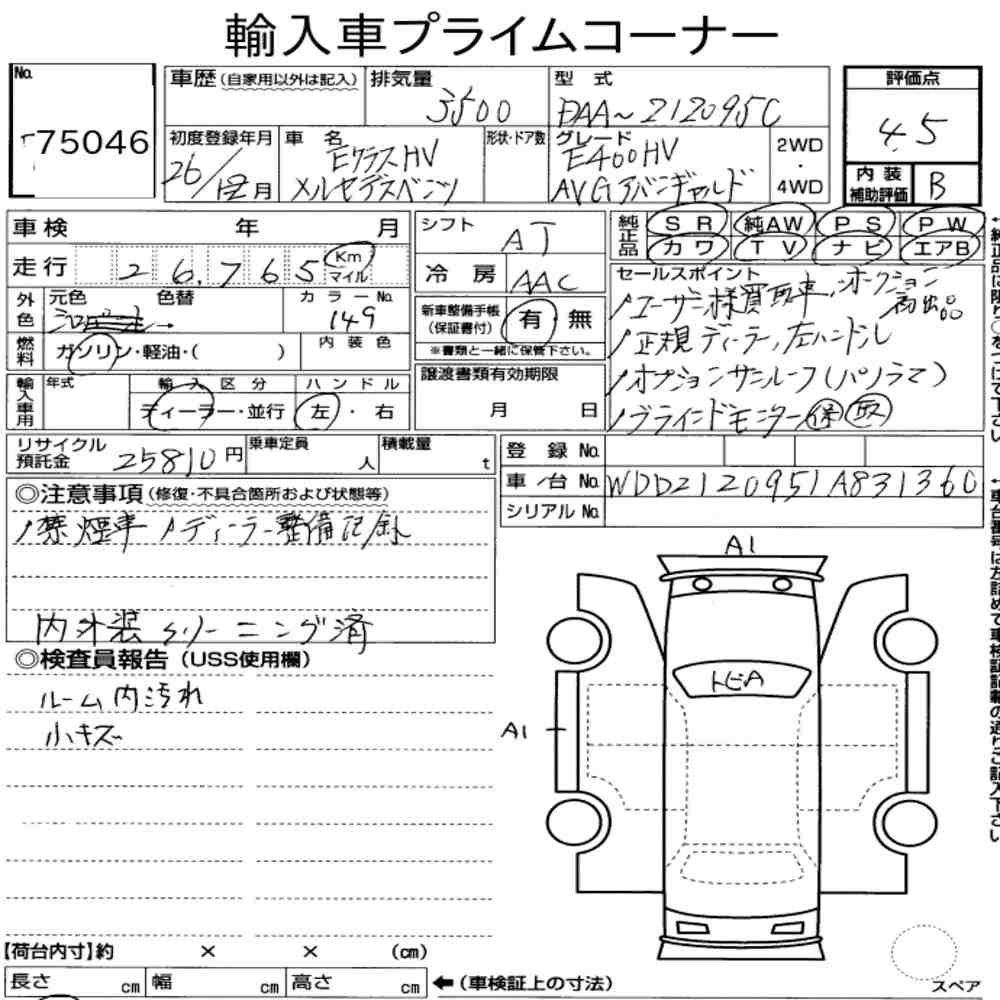 輸入車プライムコーナー
No.
75046
車歴 (自家用以外は記入)
排気量
3500
型式
DAA~212095C
評価点
4.5
初度登録年月
26/12月
車名
EクラスHV
メルセデスベンツ
形状・ドア数
グレード
E400HV
AVGアバンギャルド
2WD
・
4WD
内装
補助評価
B
車検 年 月
シフト
AT
純正品
SR 純AW PS PW
カワ TV ナビ エアB
走行 26,765 Km
マイル
冷房 AAC
セールスポイント
ノユーザー様買取車、オークション
初出品
ノ正規ディーラー,左ハンドル
ノオプションサンルーフ(パノラマ)
ノブラインドモニター 保 取
外色
元色 色替
シロ
カラーNo.
149
新車整備手帳
(保証書付)
有 無
※書類と一緒に保管下さい。
燃料
ガソリン・軽油・( )
内装色
譲渡書類有効期限
月 日
輸入車用
年式
輸入区分
ディーラー・並行
ハンドル
左・右
リサイクル
預託金
25810円
乗車定員
人
積載量
t
登録No.
車台No. WDD2120951A831360
シリアルNo.
◎注意事項 (修復・不具合箇所および状態等)
ノ禁煙車 ノディーラー整備記録
内外装クリーニング済
◎検査員報告 (USS使用欄)
ルーム内汚れ
小キズ
A1
トビA
A1
【荷台内寸】約 × × (cm)
長さ cm 幅 cm 高さ cm
←(車検証上の寸法)
スペア